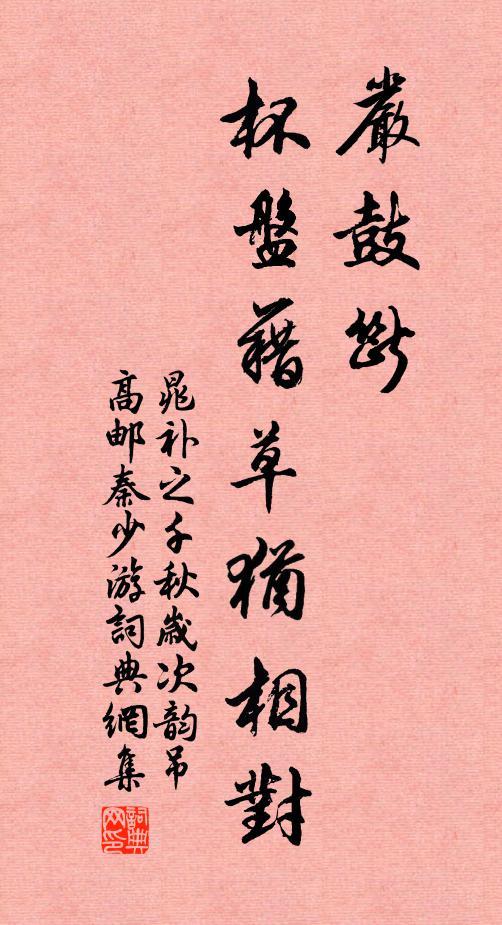 嚴鼓斷
杯盤藉草猶相對
晁补之千秋歲次韵吊
高邮秦少游詞典網集
詞典
网印